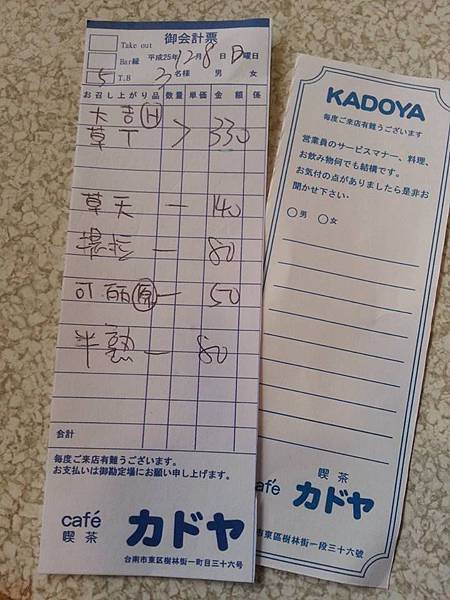 御会計票
Take out
Bar線 平成25年12月8日日曜日
5 T.B 3名様 男 女
お召し上がり品 数量 単価 金額 係
大吉H
草T > 330
草天 一 140
一 80
可丽原 一 50
半熟 一 80
会計
毎度ご来店有難うございます。
お支払いは御勘定場にお願い申し上げます。
café
喫茶 カドヤ
台南市東區樹林街一町目三十六号
KADOYA
毎度ご来店有難うございます
営業員のサービスマナー、料理、
お飲み物何でも結構です。
お気付の点がありましたら是非お
聞かせ下さい·
○男 ○女
喫茶
afé カドヤ
市東區樹林街一段三十六號